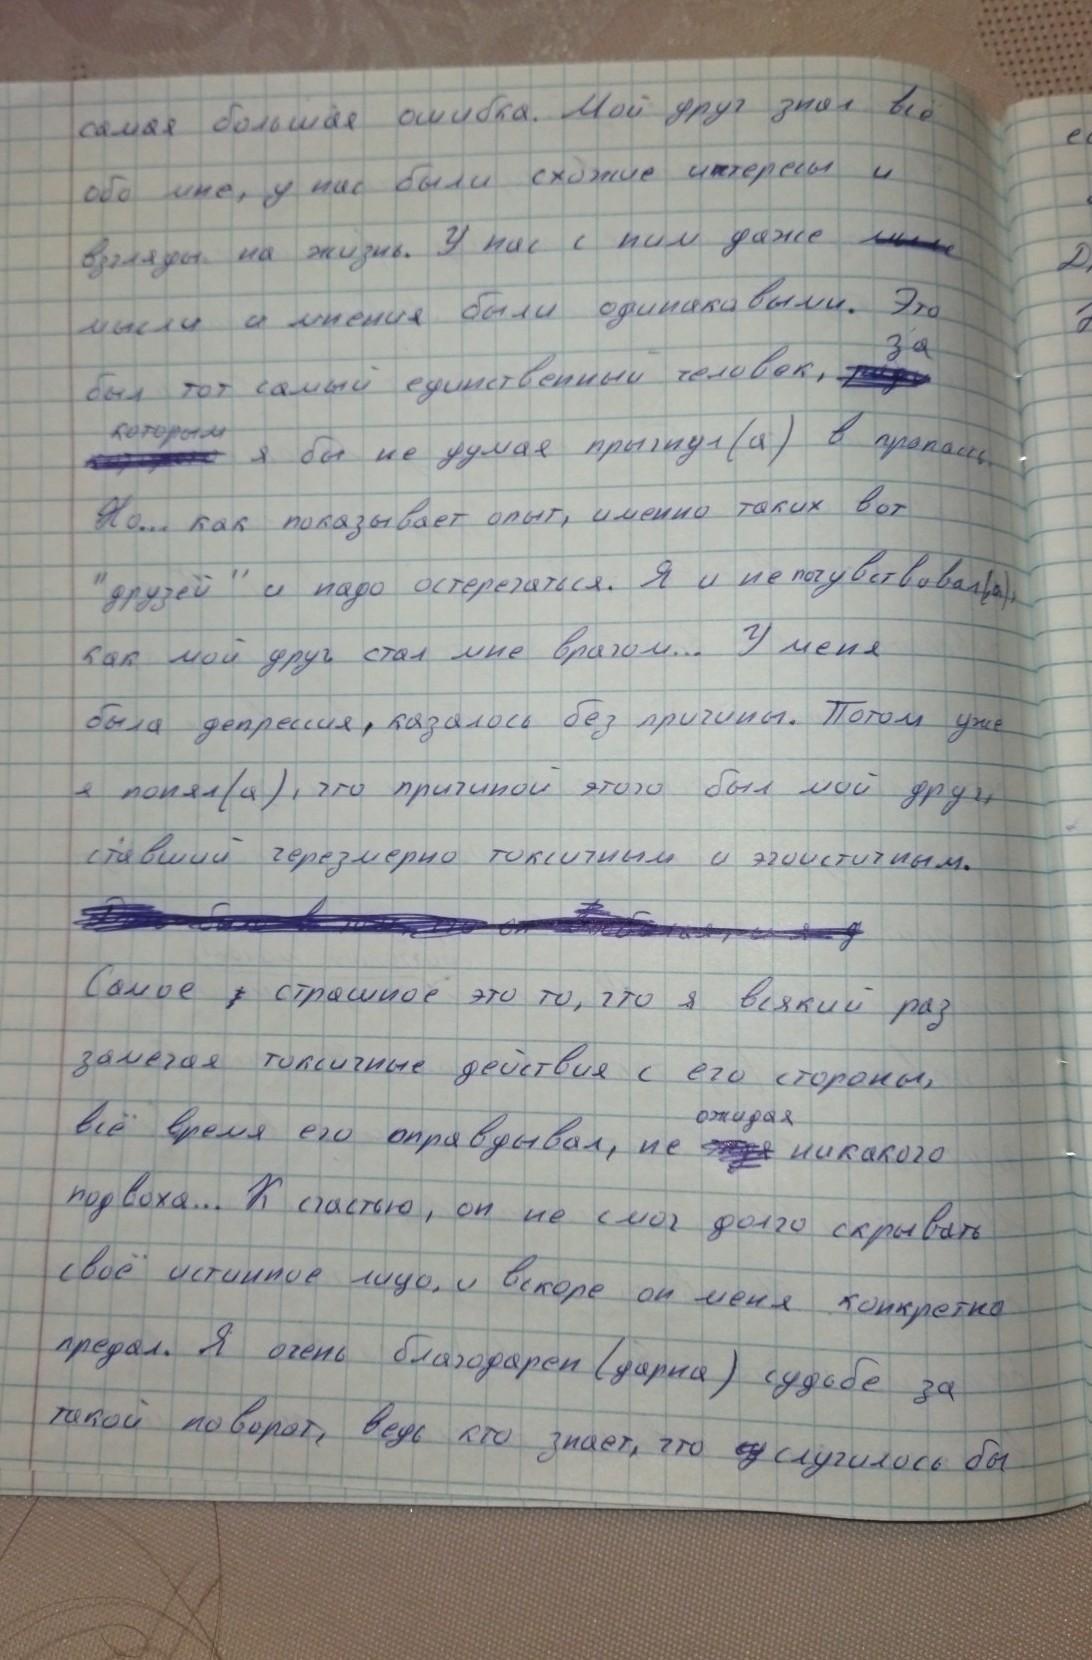 самая большая ошибка. Мой друг знал всё
обо мне, у нас были схожие интересы и
взгляды на жизнь. У нас с ним даже
мысли и мнения были одинаковыми. Это
был тот самый единственный человек, за
которым я бы не думая прыгнул(а) в пропасть.
Но... как показывает опыт, именно таких вот
"друзей" и надо остерегаться. Я и не почувствовал(а),
как мой друг стал мне врагом... У меня
была депрессия, казалось без причины. Потом уже
я понял(а), что причиной этого был мой друг,
ставший черезмерно токсичным и эгоистичным.
Самое страшное это то, что я всякий раз
замечая токсичные действия с его стороны,
всё время его оправдывал, не ожидая никакого
подвоха... К счастью, он не смог долго скрывать
своё истинное лицо, и вскоре он меня конкретно
предал. Я очень благодарен(дарна) судьбе за
такой поворот, ведь кто знает, что случилось бы